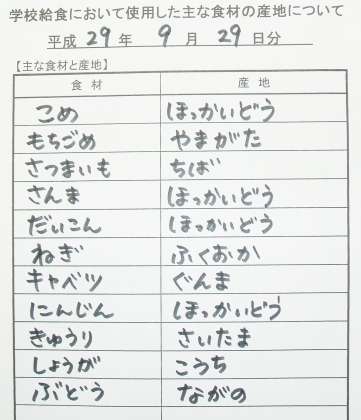 学校給食において使用した主な食材の産地について
平成 29 年 9 月 29 日分
【主な食材と産地】
食材 産地
こめ ほっかいどう
もちごめ やまがた
さつまいも ちば
さんま ほっかいどう
だいこん ほっかいどう
ねぎ ふくおか
キャベツ ぐんま
にんじん ほっかいどう
きゅうり さいたま
しょうが こうち
ぶどう ながの